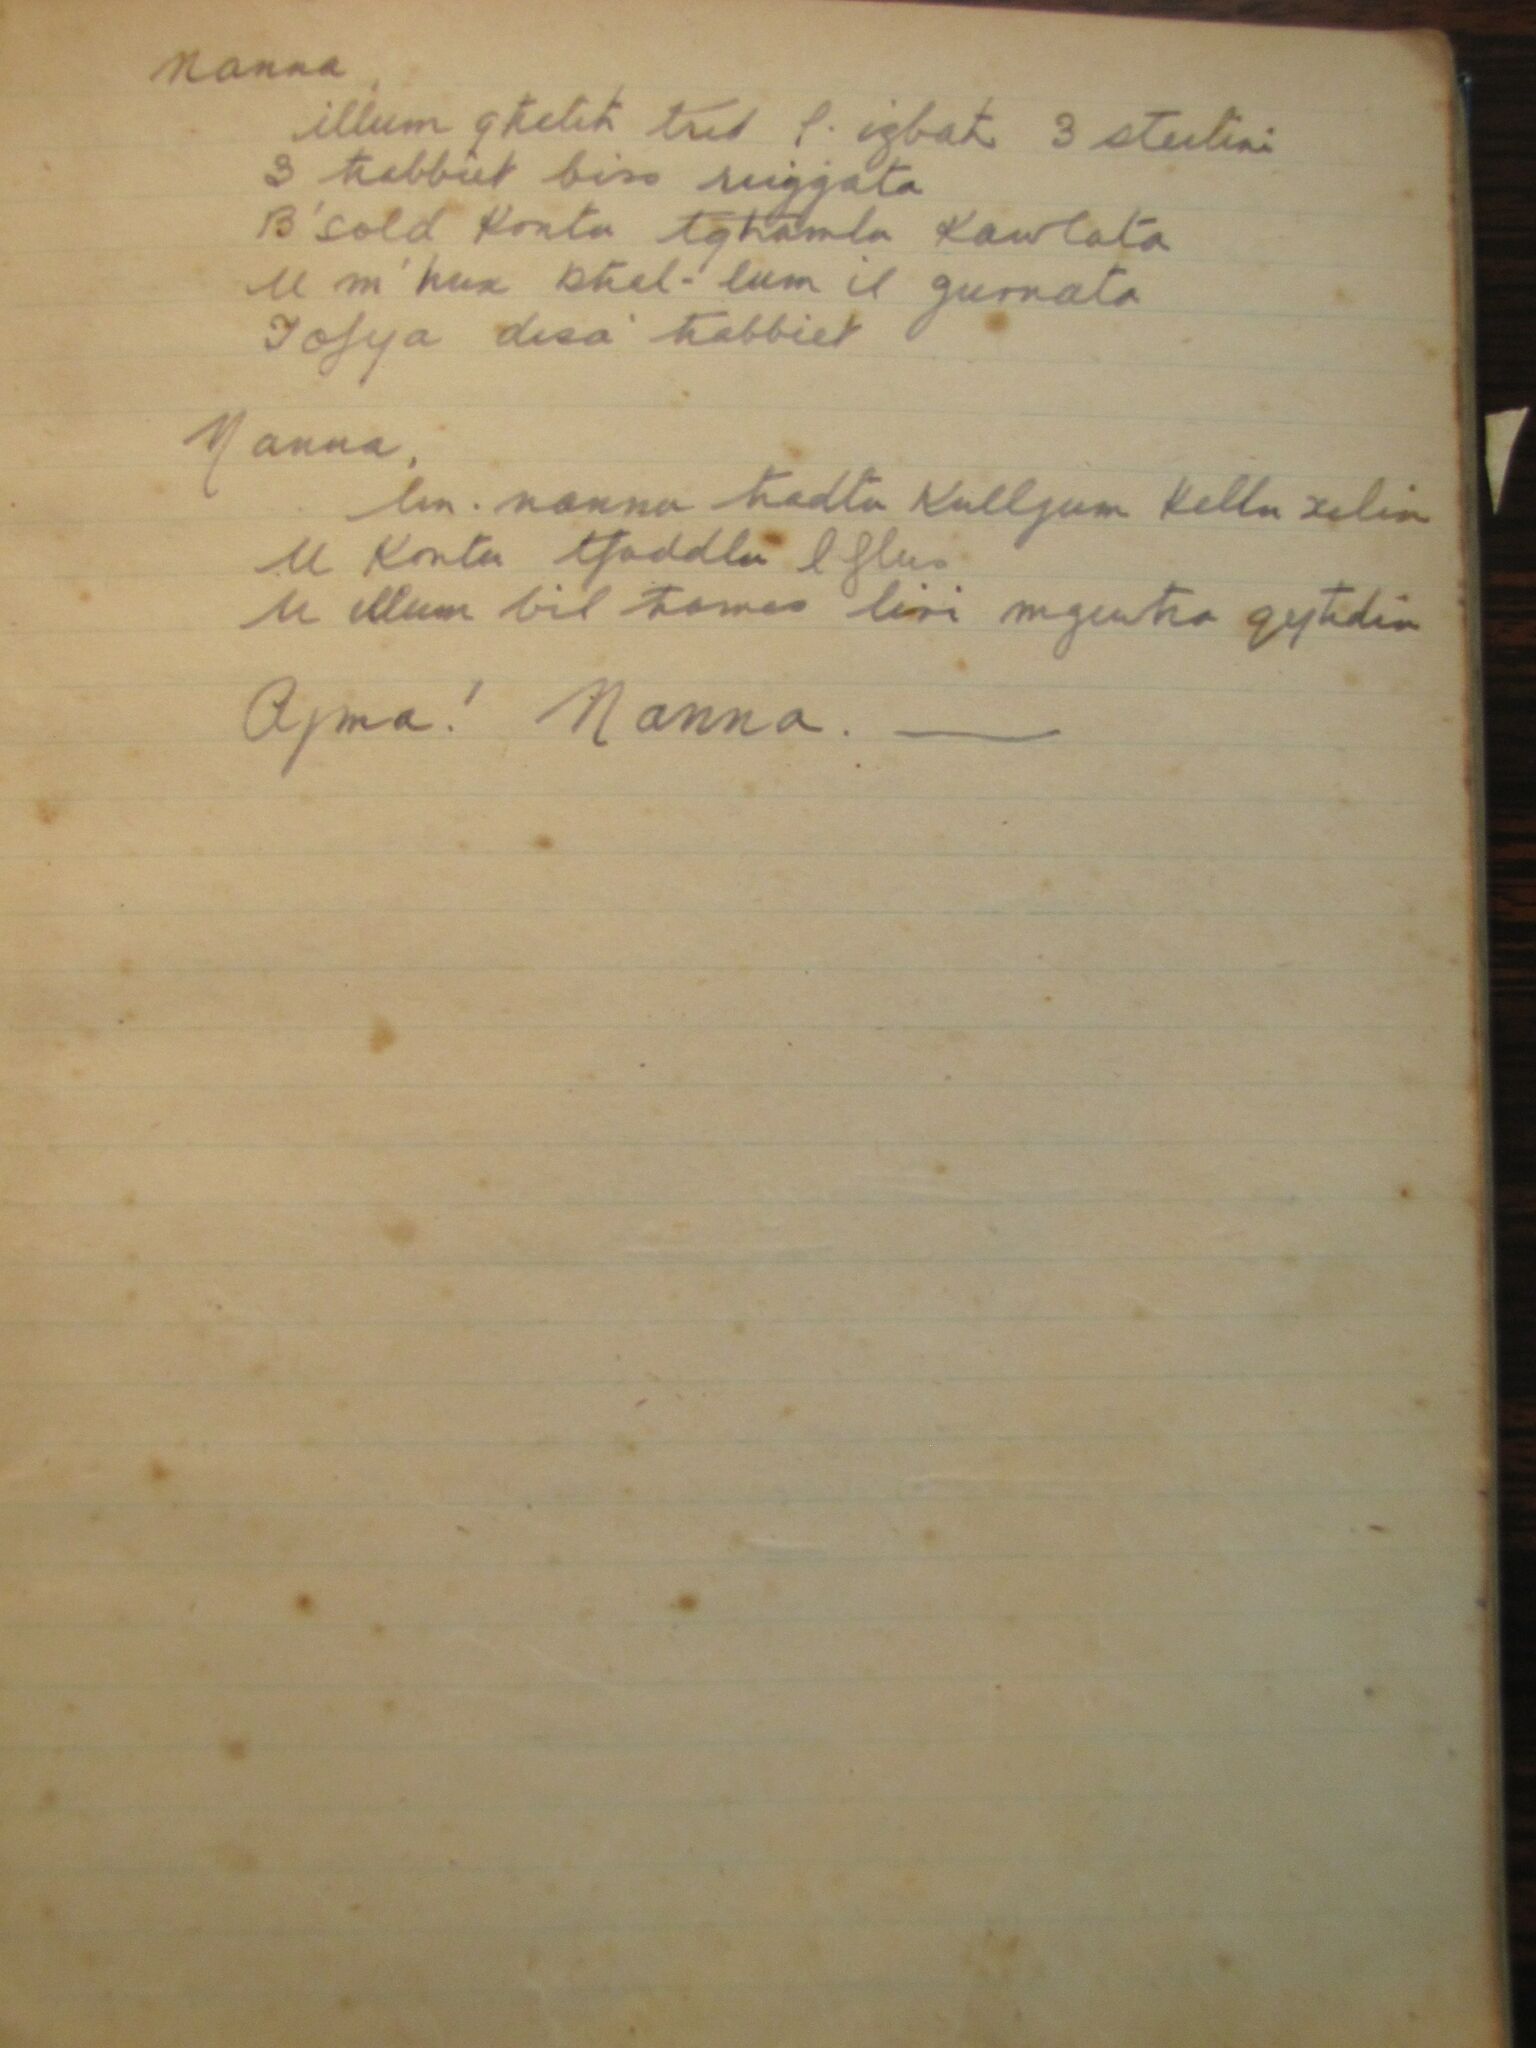 Nanna,
illum għelih trid l. izbaħ 3 sterlini
3 ħabbiet biss ruiggata
B'sold Kontu tgħamlu Kawlata
U m'hux bħal-lum il gurnata
Tofya disa' ħabbiet
Nanna,
lin. nannu ħadtu Kulljum Kellu xelin
U Kontu tfaddlu l flus
U illum bil ħames liri mgewħa qegħdin
Ajma! Nanna.